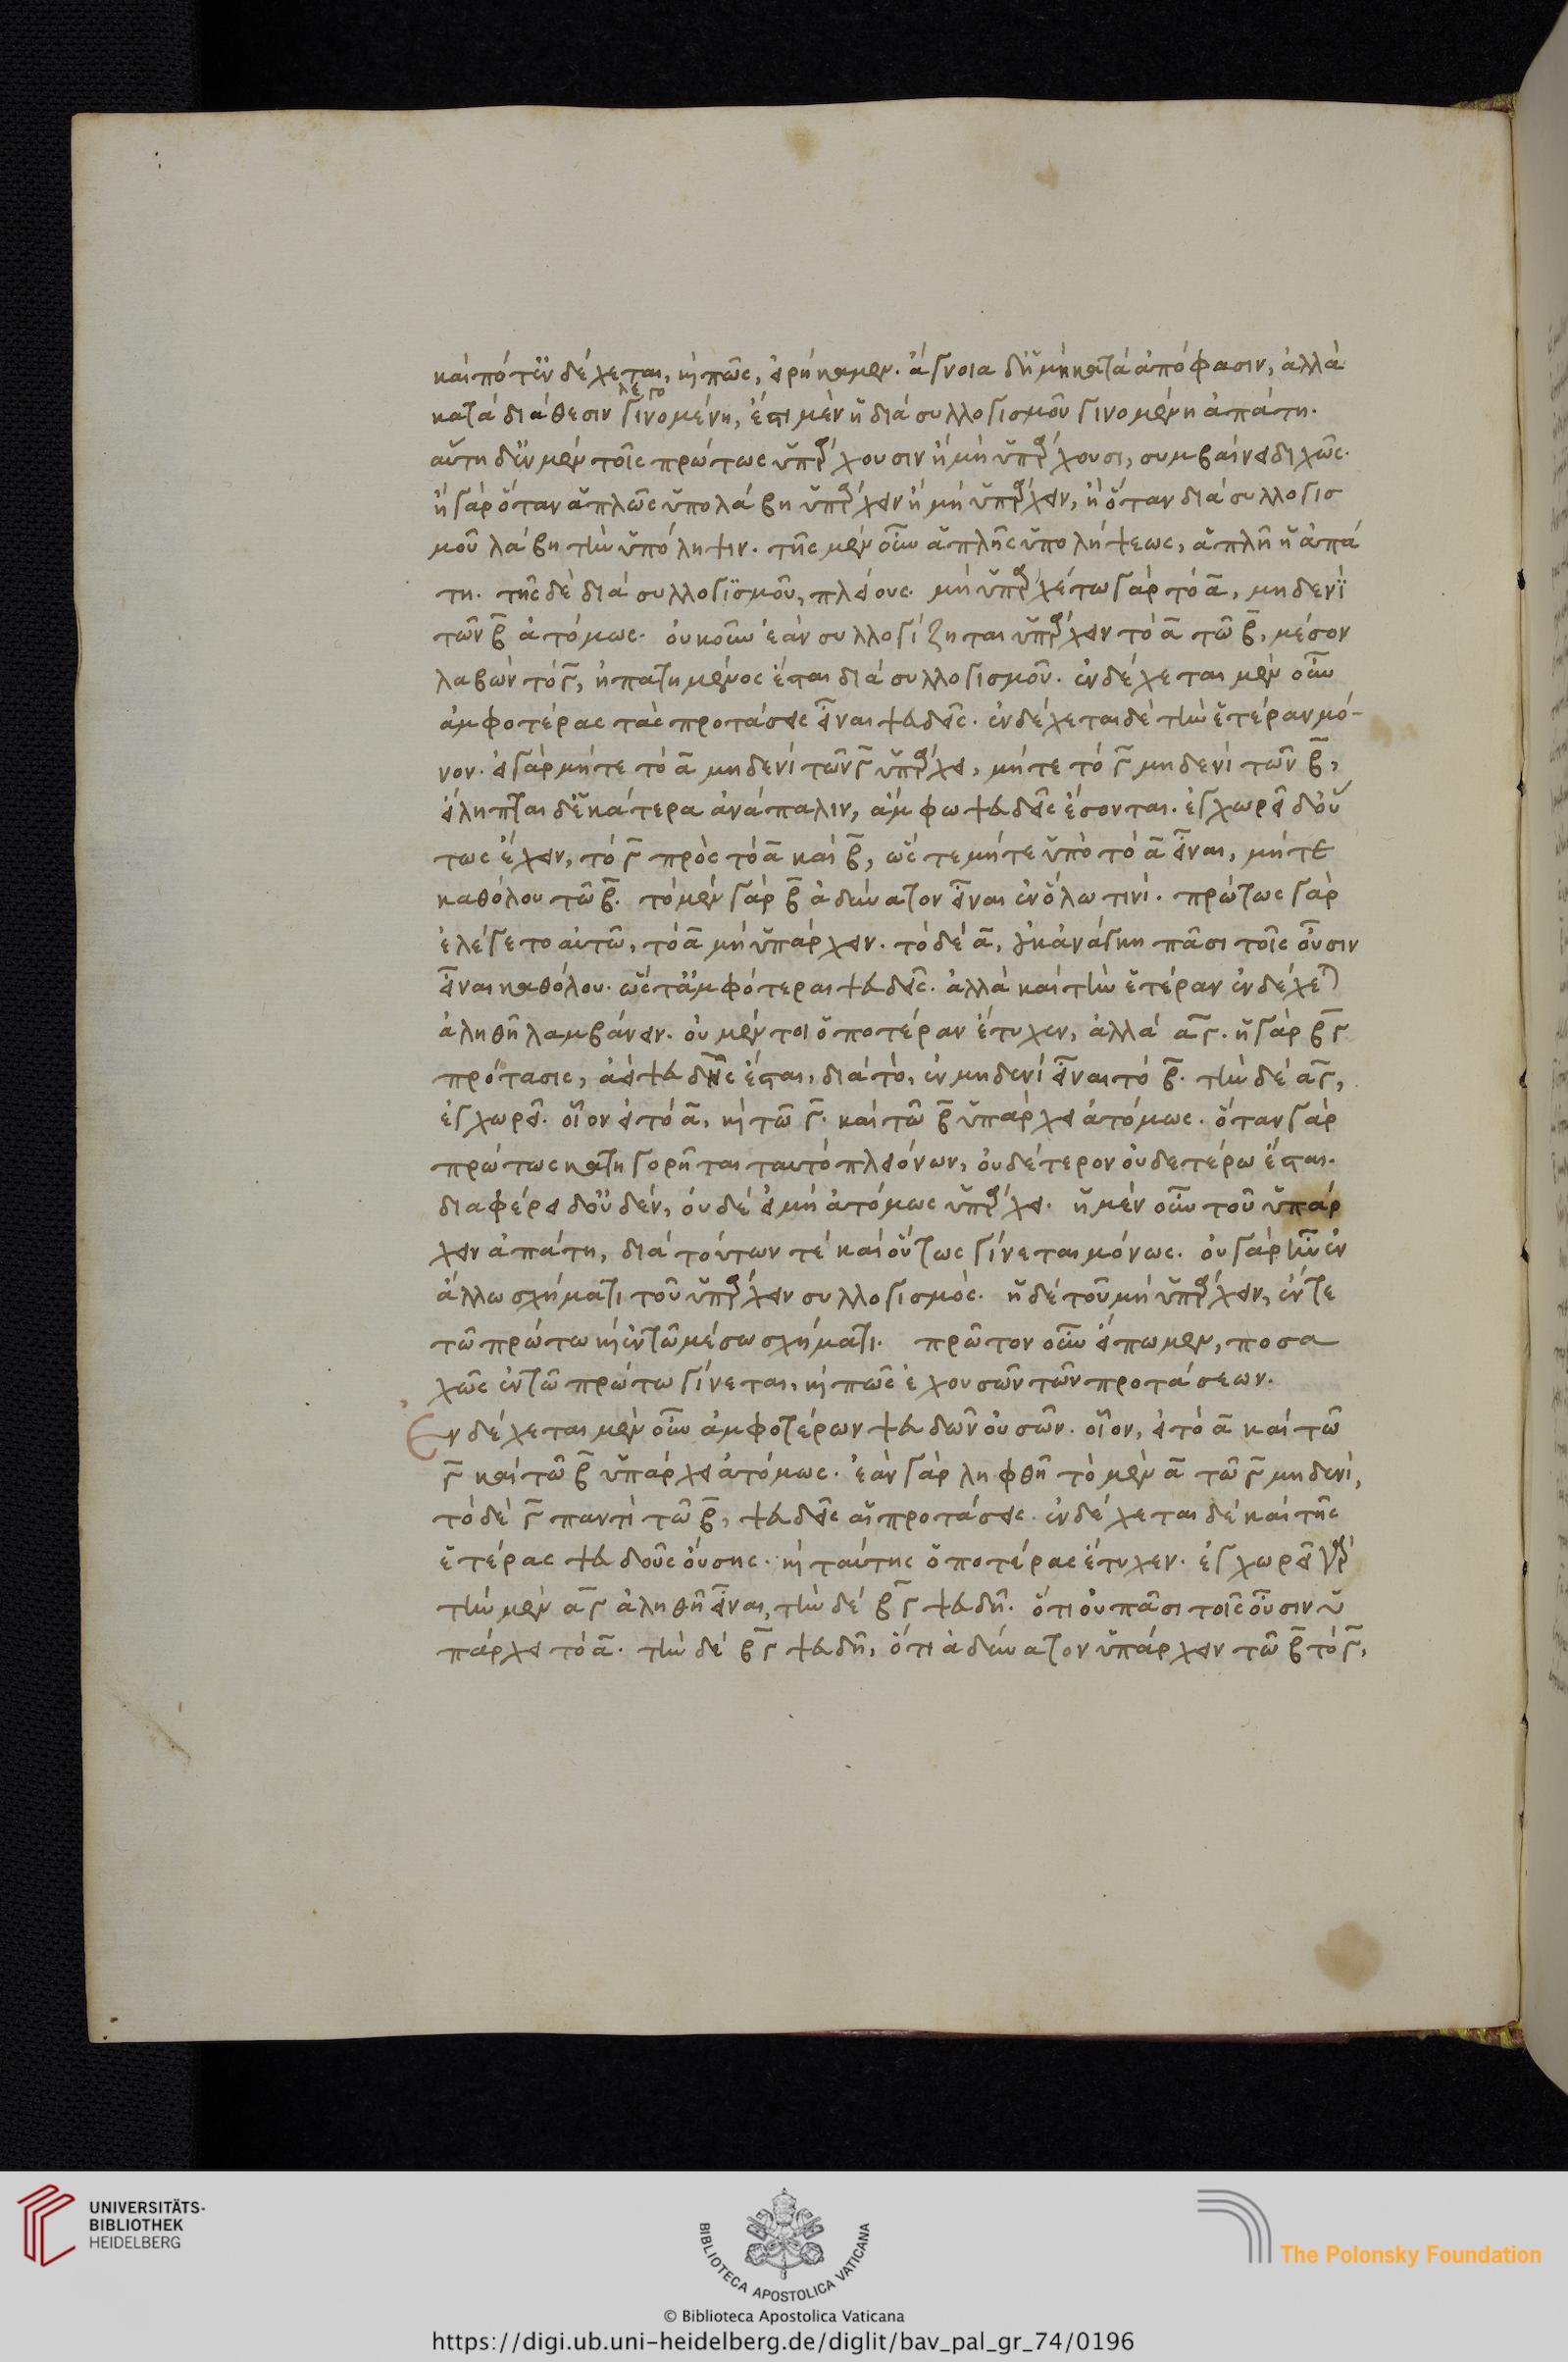 καὶ πότ' ἐνδέχεται, κ πῶς, εἰρήκαμεν. ἄγνοια δ' ἡ μὴ κατὰ ἀπόφασιν, ἀλλὰ
λεγο
κατὰ διάθεσιν γινομένη, ἔστι μὲν ἡ διὰ συλλογισμοῦ γινομένη ἀπάτη.
αὕτη δ' ἐν μὲν τοῖς πρώτως ὑπάρχουσιν ἢ μὴ ὑπάρχουσι, συμβαίνει διχῶς.
ἢ γὰρ ὅταν ἁπλῶς ὑπολάβη ὑπάρχειν ἢ μὴ ὑπάρχειν, ἢ ὅταν διὰ συλλογισ
μοῦ λάβη τὴν ὑπόληψιν. τῆς μὲν οὖν ἁπλῆς ὑπολήψεως, ἁπλῆ ἡ ἀπά
τη. τῆς δὲ διὰ συλλογϊσμοῦ, πλείους. μὴ ὑπαρχέτω γὰρ τὸ α̅, μηδενὶ
τῶν β̅ ἀτόμως. οὐκοῦν ἐὰν συλλογίζηται ὑπάρχειν τὸ α̅ τῶ β̅, μέσον
λαβὼν τὸ γ̅, ἠπατημένος ἔσται διὰ συλλογισμοῦ. ἐνδέχεται μὲν οὖν
ἀμφοτέρας τὰς προτάσεις εἶναι ψευδεῖς. ἐνδέχεται δὲ τὴν ἑτέραν μό-
νον. εἰ γὰρ μήτε τὸ α̅ μηδενὶ τῶν γ̅ ὑπάρχει, μήτε τὸ γ̅ μηδενὶ τῶν β̅,
εἴληπται δ' ἑκάτερα ἀνάπαλιν, ἄμφω ψευδεῖς ἔσονται. ἐγχωρεῖ δ' οὕ
τως ἔχειν, τὸ γ̅ πρὸς τὸ α̅ καὶ β̅, ὥστε μήτε ὑπὸ τὸ α̅ εἶναι, μήτε
καθόλου τῶ β̅. τὸ μὲν γὰρ β̅ ἀδύνατον εἶναι ἐν ὅλω τινί. πρώτως γὰρ
ἐλέγετο αὐτῶ, τὸ α̅ μὴ ὑπάρχειν. τὸ δὲ α̅, οὐκ ἀνάγκη πᾶσι τοῖς οὖσιν
εἶναι καθόλου. ὥστ' ἀμφότεραι ψευδεῖς. ἀλλὰ καὶ τὴν ἑτέραν ἐνδέχετ
ἀληθῆ λαμβάνειν. οὐ μέντοι ὁποτέραν ἔτυχεν, ἀλλὰ α̅γ̅. ἡ γὰρ β̅γ̅
πρότασις, ἀεὶ ψευδὴς ἔσται, διὰ τὸ, ἐν μηδενὶ εἶναι τὸ β̅. τὴν δὲ α̅γ̅,
ἐγχωρεῖ. οἷον εἰ τὸ α̅, κ τῶ γ̅. καὶ τῶ β̅ ὑπάρχει ἀτόμως. ὅταν γὰρ
πρώτως κατηγορῆται ταυτὸ πλειόνων, οὐδέτερον οὐδετέρω ἔσται.
διαφέρει δ' οὐδέν, οὐδὲ εἰ μὴ ἀτόμως ὑπάρχει. ἡ μὲν οὖν τοῦ ὑπάρ
χειν ἀπάτη, διὰ τούτων τὲ καὶ οὕτως γίνεται μόνως. οὐ γὰρ ἦν ἐν
ἄλλω σχήματι τοῦ ὑπάρχειν συλλογισμός. ἡ δὲ τοῦ μὴ ὑπάρχειν, ἔν τε
τῶ πρώτω κ ἐν τῶ μέσω σχήματι. πρῶτον οὖν εἴπωμεν, ποσα
χῶς ἐν τῶ πρώτω γίνεται, κ πῶς ἐχουσῶν τῶν προτάσεων.
Ἐνδέχεται μὲν οὖν ἀμφοτέρων ψευδῶν οὐσῶν. οἷον, εἰ τὸ α̅ καὶ τῶ
γ̅ καὶ τῶ β̅ ὑπάρχει ἀτόμως. ἐὰν γὰρ ληφθῆ τὸ μὲν α̅ τῶ γ̅ μηδενί,
τὸ δὲ γ̅ παντὶ τῶ β̅, ψευδεῖς αἱ προτάσεις. ἐνδέχεται δὲ καὶ τῆς
ἑτέρας ψευδοῦς οὔσης. κ ταύτης ὁποτέρας ἔτυχεν. ἐγχωρεῖ γὰρ
τὴν μὲν α̅γ̅ ἀληθῆ εἶναι, τὴν δὲ β̅γ̅ ψευδῆ. ὅτι οὐ πᾶσι τοῖς οὖσιν ὑ
πάρχει τὸ α̅. τὴν δὲ β̅γ̅ ψευδῆ, ὅτι ἀδύνατον ὑπάρχειν τῶ β̅ τὸ γ̅,
UNIVERSITÄTS-
BIBLIOTHEK
HEIDELBERG
BIBLIOTECA APOSTOLICA VATICANA
© Biblioteca Apostolica Vaticana
The Polonsky Foundation
https://digi.ub.uni-heidelberg.de/diglit/bav_pal_gr_74/0196